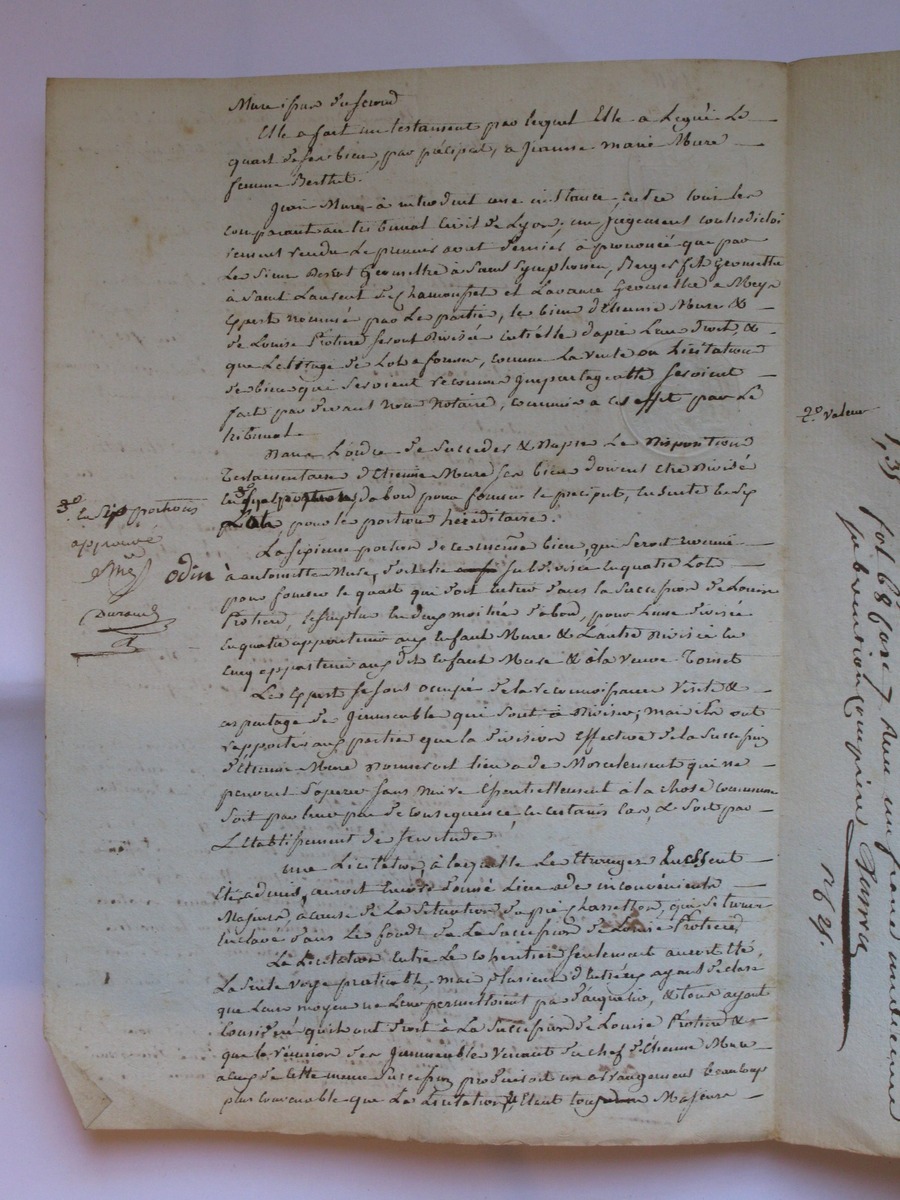 Mure issu du second
Elle a fait un testament par lequel Elle a Légué Le
quart de ses biens, par préciput, a Jeanne marie Mure
femme Berthet.
Jean Mure à introduit une instance, entre tous les
comparant au tribunal civil de Lyon; un Jugement contradictoi
rement rendu Le premier aout dernier à prononcé que par
Les Sieur Géomettre à Saint Symphorien, Berger fils Géomettre
à Saint Laurent de Chamousset et Lavaure Géomettre a Meys
Expert nommés par Les parties, les biens d'Etienne Mure &
de Louise Protiere seront divisés entr'elles d'après Leurs Droits, &
que Le tirage des Lots a former, comme La vente ou licitation
des biens qui seroient reconnus Impartageables seroient
fait par devant nous Notaire, commis a cet effet par Le
tribunal.
Dans L'ordre de succeder & d'après Les Dispositions
Testamentaire d'Etienne Mure ses biens doivent être divisés
d'abord pour former le préciput, ensuite en Six
Lots, pour les portions héréditaires.
3° En Six portions
approuvé
Odin
Durand
La Sixieme portion de ce même bien, qui seroit revenue
à antoinette Mure, doit être subdivisée en quatre Lots
pour former le quart qui doit entrer dans la succession de Louise
Protiere, Le surplus en deux moitiés d'abord, pour L'une divisée
en quatre appartenir aux Enfant Mure & L'autre divisée en
cinq appartenir aux dits Enfant Mure & à la veuve Tonset
Les Expert se sont occupés de la reconnoissance Visite &
apartage des Immeubles qui sont à diviser; mais ils ont
rapporté aux parties que la division effective de la succession
d'Etienne Mure donneroit lieu a des Morcelement qui ne
peuvent S'operer Sans nuire Essentiellement à la chose commune
Soit par leur peu de consequence, en certains cas, & Soit par
L'Etablissement de servitude
une Licitation, à laquelle Les Etrangers Eussent
Eté admis, auroit encore donné Lieu a des inconvénients
Majeurs, a cause de La situation du pré Chassetton, qui se trouve
Enclavé dans Les fonds de La Succession de Louise Protiere,
La Licitation entre Les cohéritiers seulement auroit été
La seule voye praticable, mais plusieurs d'entr'eux ayant déclaré
que Leurs moyens ne Leur permettoient pas d'acquérir, & tous ayant
considéré qu'ils ont droit à La Succession de Louise Protiere &
que la réunion des Immeubles Venant du chef d'Etienne Mure
a ceux de cette meme Succession produiroit un arrangement beaucoup
plus convenable que La Licitation, Etant tous Majeurs
2° valeur
fol 68
un franc
subvention